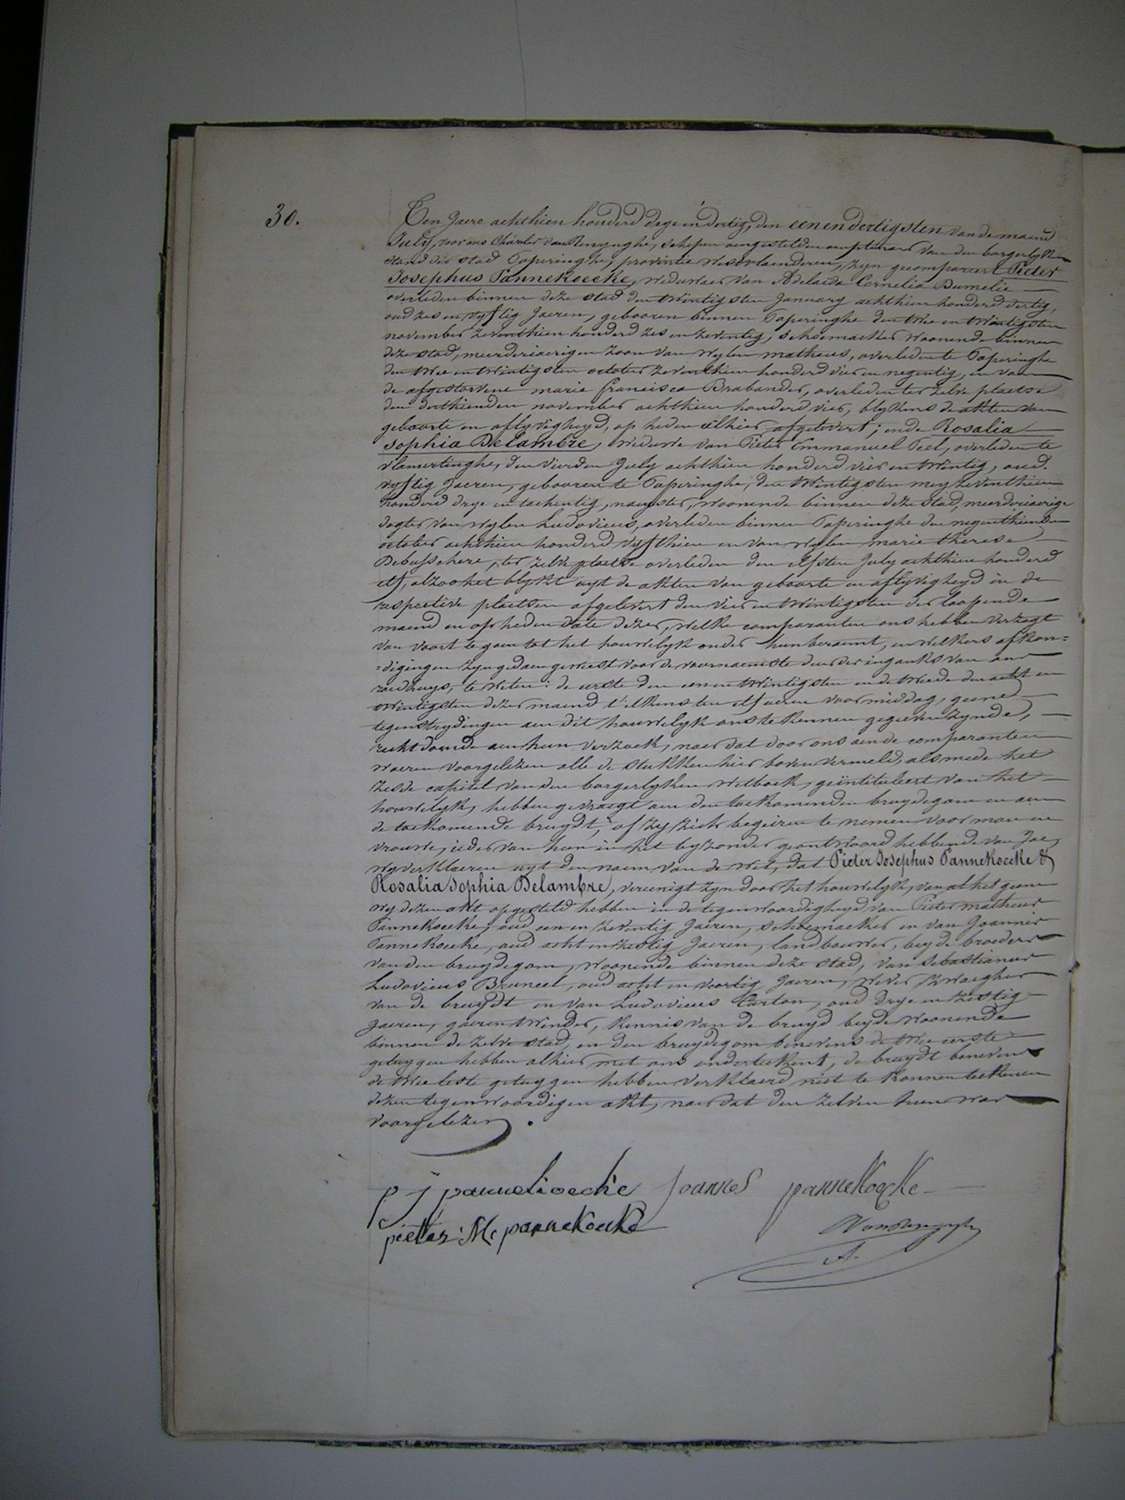 30.
Ten Jaere achthien honderd drye en dertig, den eenendertigsten van de maend
July, voor ons Charles Van Renynghe, schepen aengestelden amptenaer van den borgerlyken
stand der stad Poperinghe, provincie Westvlaenderen, zyn gecompareert Pieter
Josephus Pannekoecke, weduwaer van Adelaide Cornelia Dumelie
overleden binnen deze stad den twintigsten January achthien honderd dertig,
oud zes en vyftig Jaeren, gebooren binnen Poperinghe den twee en twintigsten
november zeventhien honderd zes en zeventig, schoenmaeker woonende binnen
deze stad, meerderjaerigen zoon van wylen matheus, overleden te Poperinghe
den twee en twintigsten october zeventhien honderd vier en negentig, en van
de afgestorvene marie francisca Brabander, overleden ter zelve plaetse
den derthienden november achthien honderd vier, blykens de akten van
geboorte en aflyvigheyd, op heden alhier afgelevert; ende Rosalia
Sophia Delambre, weduwe van Pieter Emmanuel Peel, overleden te
Vlamertinghe, den vierden July achthien honderd vier en twintig, oud
vyftig Jaeren, gebooren te Poperinghe, den twintigsten mey zeventhien
honderd drye en tachentig, naeyster, woonende binnen deze stad, meerderjaerige
dogter van wylen Ludovicus, overleden binnen Poperinghe den negenthienden
october achthien honderd vyfthien en van wylen marie therese
Debusschere, ter zelve plaetse overleden den elfsten July achthien honderd
elf, alzoo het blykt uyt de akten van geboorte en aflyvigheyd in de
respective plaetsen afgelevert den vier en twintigsten der loopende
maend en op heden date dezer, welke comparanten ons hebben verzogt
van voort te gaen tot het houwelyk onder hun beraemt, en welkers afkon=
=digingen zyn gedaen geweest voor de voornaemste deur der ingank van ons
raedhuys, te weten: de eerste den een en twintigsten en de tweede den acht en
twintigsten dezer maend t'elkens ten elf ueren voormiddag, geene
tegenstrydingen aen dit houwelyk ons te kennen gegeven zynde,
recht doende aen hun verzoek, naer dat door ons aen de comparanten
waeren voorgelezen alle de stukken hier boven vermeld, als mede het
zesde capitel van den borgerlyken wetboek, geïntituleert van het
houwelyk, hebben gevraegt aen den toekomenden bruydegom en aen
de toekomende bruydt, of zy zich begeiren te nemen voor man en
vrouwe, ieder van hun in het byzonder geantwoord hebbende van Jae,
wy verklaeren uyt den naem van de wet, dat Pieter Josephus Pannekoecke &
Rosalia Sophia Delambre, vereenigt zyn door het houwelyk, van al het geene
wy dezen akt opgesteld hebben in de tegenwoordigheyd van Pieter matheus
Pannekoecke, oud een en zeventig Jaeren, schoenmaeker en van Joannes
Pannekoecke, oud acht en zestig Jaeren, landbouwer, beyde broeders
van den bruydegom, woonende binnen deze stad, van Sebastianus
Ludovicus Bruneel, oud acht en veertig Jaeren, wever, zwaegher
van de bruydt en van Ludovicus Carton, oud drye en zestig
Jaeren, gaerentwinder, kennis van de bruyd beyde woonende
binnen de zelve stad, en den bruydegom benevens de twee eerste
getuygen hebben alhier met ons onderteekent, de bruydt benevens
de twee leste getuygen hebben verklaerd niet te konnen teekenen
dezen tegenwoordigen akt, naer dat den zelven hun was
voorgelezen.
p j pannekoecke Joannes pannekoecke
pieter M pannekoecke VanRenynghe